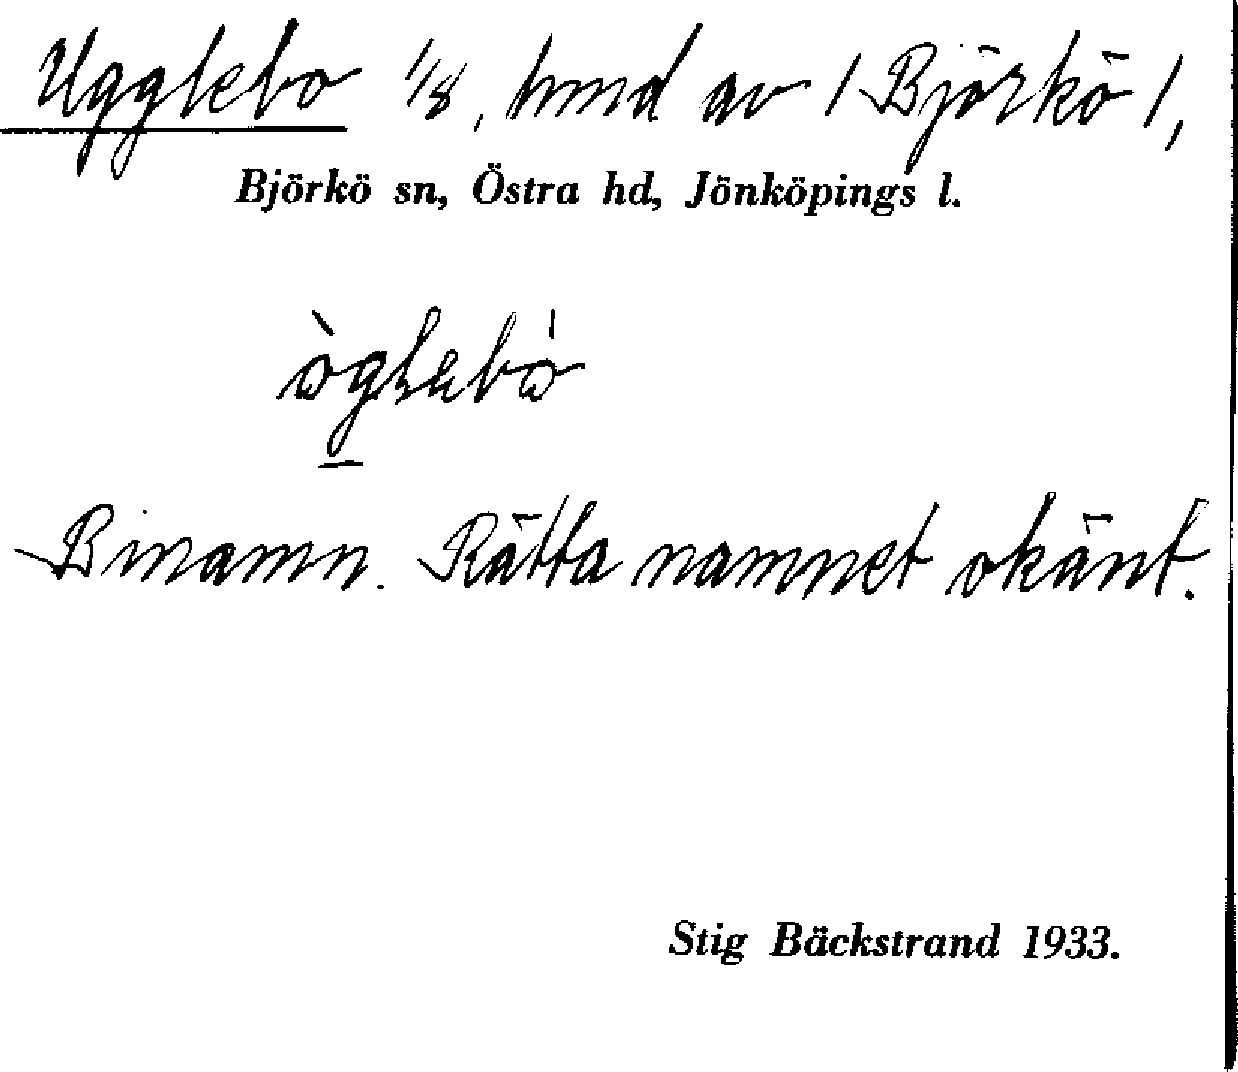 Ugglebo 1/8, hmd av / Björkö /,
Björkö sn, Östra hd, Jönköpings l.
Binamn. Rätta namnet okänt.
Stig Bäckstrand 1933.